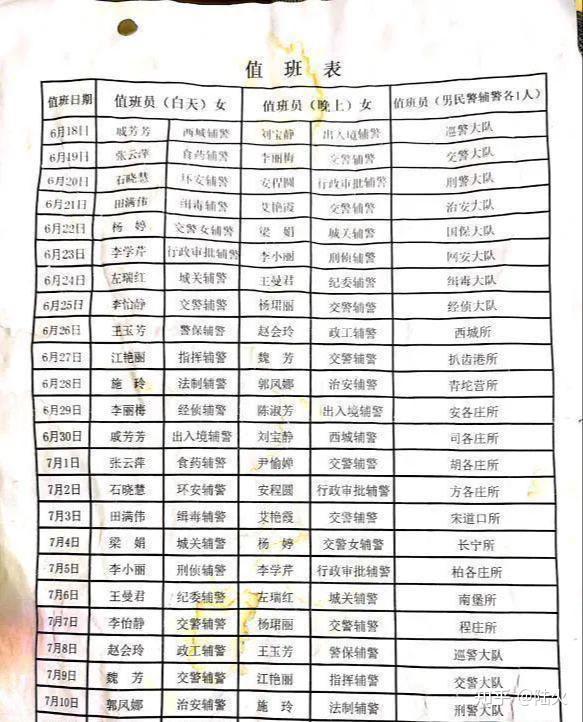 值 班 表
值班日期 值班员（白天）女 值班员（晚上）女 值班员（男民警辅警各1人）
6月18日 戚芳芳 西城辅警 刘宝静 出入境辅警 巡警大队
6月19日 张云萍 食药辅警 李丽梅 交警辅警 交警大队
6月20日 石晓慧 环安辅警 安程圆 行政审批辅警 刑警大队
6月21日 田满伟 缉毒辅警 艾艳霞 交警辅警 治安大队
6月22日 杨 婷 交警女辅警 梁 娟 城关辅警 国保大队
6月23日 李学芹 行政审批辅警 李小丽 刑侦辅警 网安大队
6月24日 左瑞红 城关辅警 王曼君 纪委辅警 缉毒大队
6月25日 李怡静 交警辅警 杨珺丽 交警辅警 经侦大队
6月26日 王玉芳 警保辅警 赵会玲 政工辅警 西城所
6月27日 江艳丽 指挥辅警 魏 芳 交警辅警 扒齿港所
6月28日 施 玲 法制辅警 郭凤娜 治安辅警 青坨营所
6月29日 李丽梅 经侦辅警 陈淑芳 出入境辅警 安各庄所
6月30日 戚芳芳 出入境辅警 刘宝静 西城辅警 司各庄所
7月1日 张云萍 食药辅警 尹愉婵 交警辅警 胡各庄所
7月2日 石晓慧 环安辅警 安程圆 行政审批辅警 方各庄所
7月3日 田满伟 缉毒辅警 艾艳霞 交警辅警 宋道口所
7月4日 梁 娟 城关辅警 杨 婷 交警女辅警 长宁所
7月5日 李小丽 刑侦辅警 李学芹 行政审批辅警 柏各庄所
7月6日 王曼君 纪委辅警 左瑞红 城关辅警 南堡所
7月7日 李怡静 交警辅警 杨珺丽 交警辅警 程庄所
7月8日 赵会玲 政工辅警 王玉芳 警保辅警 巡警大队
7月9日 魏 芳 交警辅警 江艳丽 指挥辅警 交警大队
7月10日 郭凤娜 治安辅警 施 玲 法制辅警 刑警大队
知乎 @陆火